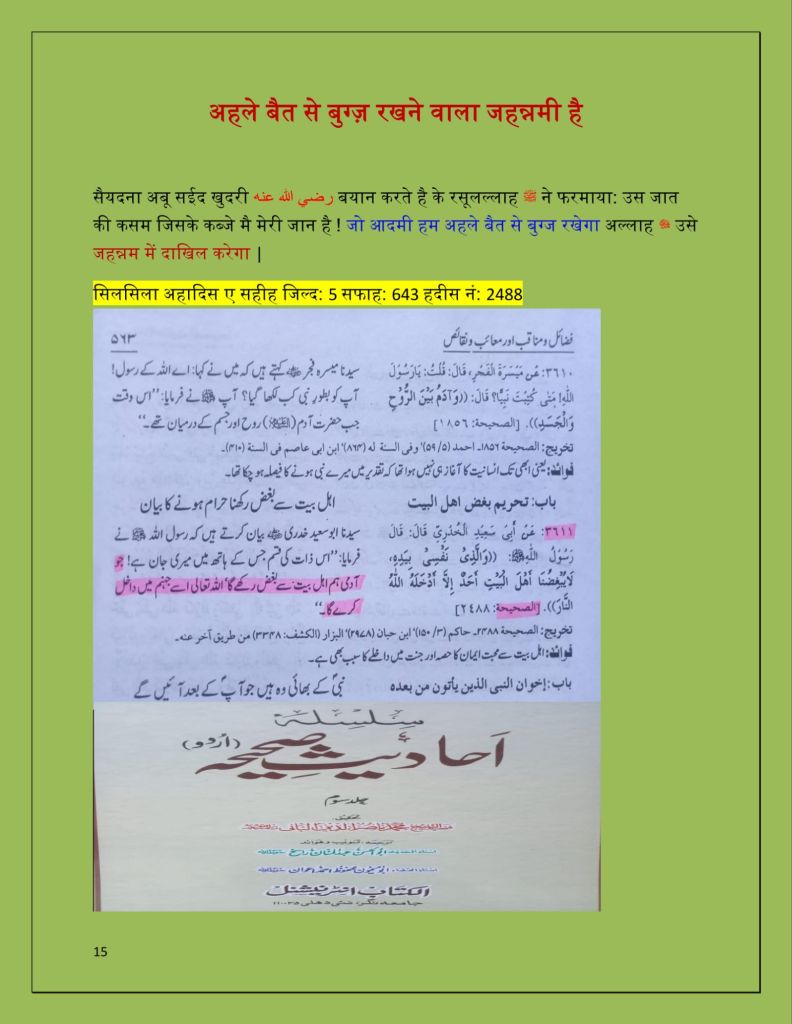 अहले बैत से बुग्ज़ रखने वाला जहन्नमी है
सैयदना अबू सईद खुदरी رضي الله عنه बयान करते है के रसूलल्लाह ﷺ ने फरमाया: उस जात
की कसम जिसके कब्जे मै मेरी जान है ! जो आदमी हम अहले बैत से बुग्ज रखेगा अल्लाह उसे
जहन्नम में दाखिल करेगा |
सिलसिला अहादिस ए सहीह जिल्द: 5 सफाह: 643 हदीस नं: 2488
فضائل ومناقب اور معائب ونقائص ۵۶۳
۳۶۱۰: عَنْ مَيْسَرَةَ الْفَجْرِ، قَالَ: قُلْتُ: يَارَسُوْلَ
اللهِ! مَتٰى كُتِبْتَ نَبِيًّا؟ قَالَ: ((وَآدَمُ بَيْنَ الرُّوْحِ
وَالْجَسَدِ)). [الصحيحة: ۱۸۵۶]
سیدنا میسرہ فجر کہتے ہیں کہ میں نے کہا: اے اللہ کے رسول!
آپ کو بطور نبی کب لکھا گیا؟ آپ ﷺ نے فرمایا: ’’اس وقت
جب حضرت آدم (علیہ السلام) روح اور جسم کے درمیان تھے۔‘‘
تخریج: الصحیحة ۱۸۵۶۔ احمد (۵/ ۵۹)' وفی السنة له (۸۶۴)' ابن ابی عاصم فی السنة (۴۱۰)۔
فوائد: یعنی ابھی تک انسانیت کا آغاز ہی نہیں ہوا تھا کہ تقدیر میں میرے نبی ہونے کا فیصلہ ہو چکا تھا۔
باب: تحريم بغض اهل البيت
اہل بیت سے بغض رکھنا حرام ہونے کا بیان
۳۶۱۱: عَنْ أَبِي سَعِيْدٍ الْخُدْرِيِّ قَالَ: قَالَ
رَسُوْلُ اللهِ ﷺ: ((وَالَّذِيْ نَفْسِيْ بِيَدِهِ،
لَايُبْغِضُنَا أَهْلَ الْبَيْتِ أَحَدٌ إِلَّا أَدْخَلَهُ اللهُ
النَّارَ)). [الصحيحة: ۲۴۸۸]
سیدنا ابو سعید خدری بیان کرتے ہیں کہ رسول اللہ ﷺ نے
فرمایا: ’’اس ذات کی قسم جس کے ہاتھ میں میری جان ہے! جو
آدمی ہم اہل بیت سے بغض رکھے گا' اللہ تعالی اسے جہنم میں داخل
کرے گا۔‘‘
تخریج: الصحیحة ۲۴۸۸۔ حاکم (۳/ ۱۵۰)' ابن حبان (۲۹۷۸)' البزار (الکشف: ۳۳۴۸) من طریق آخر عنه۔
فوائد: اہل بیت سے محبت ایمان کا حصہ اور جنت میں داخلے کا سبب بھی ہے۔
باب: إخوان النبى الذين يأتون من بعده
نبیؐ کے بھائی وہ ہیں جو آپؐ کے بعد آئیں گے
سلسلة
احادیث صحیحہ (اُردو)
جلد سوم
الکتاب انٹرنیشنل
جامعہ نگر، نئی دھلی ۱۱۰۰۲۵
15